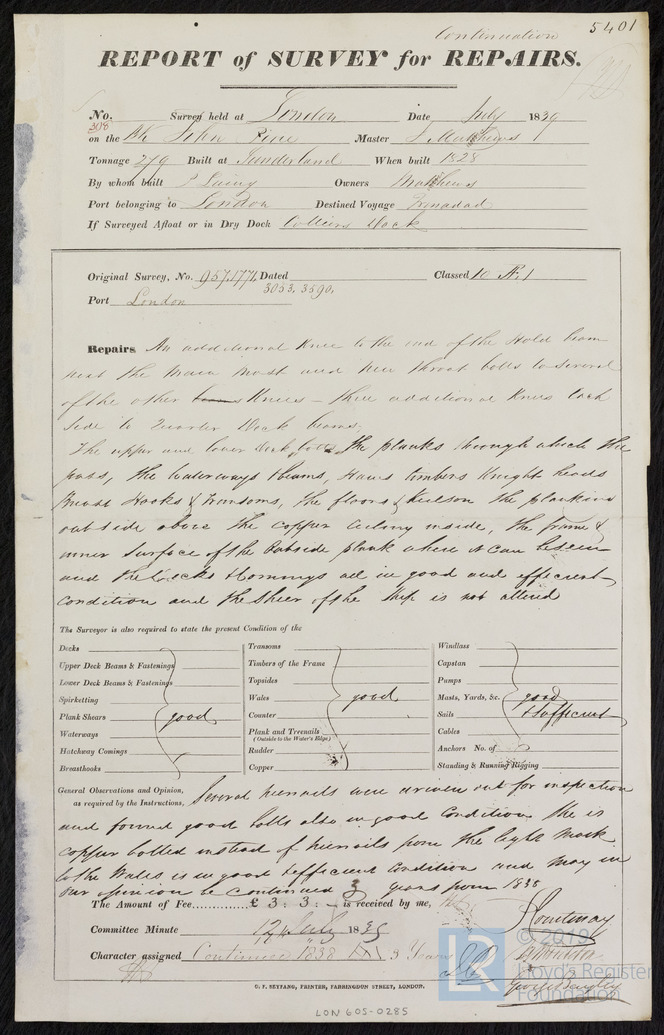 Continuation
5401
REPORT of SURVEY for REPAIRS.
No. 308 Survey held at London Date July 1839
on the Bk John Pirie Master J Matthews
Tonnage 279 Built at Sunderland When built 1828
By whom built P Laing Owners Matthews
Port belonging to London Destined Voyage Trinadad
If Surveyed Afloat or in Dry Dock Colliers Dock
Original Survey, No. 957.1771, Dated Classed 10 A 1
3053, 3590,
Port London
Repairs An additional Knee to the end of the Hold beam
next the Main Mast and new throat bolts to several
of the other Knees – three additional Knees each
side to Quarter Deck beams,
The upper and lower Deck, bolts the planks through which they
pass, the waterways & beams, Haws timbers Knight heads
Breast Hooks & Transoms, the floors & Keelson the planking
outside above the copper cieling inside, the frame &
inner surface of the outside plank where it can be seen
and the Decks & Commings all in good and efficient
condition and the Sheer of the Ship is not altered
The Surveyor is also required to state the present Condition of the
Decks
Upper Deck Beams & Fastenings
Lower Deck Beams & Fastenings
Spirketting
Plank Shears good
Waterways
Hatchway Comings
Breasthooks
Transoms
Timbers of the Frame
Topsides
Wales good
Counter
Plank and Treenails
(Outside to the Water's Edge)
Rudder
Copper
Windlass
Capstan
Pumps
Masts, Yards, &c. good
Sails & sufficient
Cables
Anchors No. of
Standing & Running Rigging
General Observations and Opinion,
as required by the Instructions, Several treenails were driven out for inspection
and found good bolts also in good condition She is
copper bolted instead of treenails from the light Mark
to the Wales is in good & efficient condition and may in
our opinion be continued 3 years from 1838
The Amount of Fee............£ 3 : 3 : – is received by me,
Committee Minute 12 July 1839
Character assigned Continued 1838 A1 3 Years
J Courtenay
George Bayley
© 2019
Lloyd's Register
Foundation
LR
C. F. SEYFANG, PRINTER, FARRINGDON STREET, LONDON.
LON 605-0285